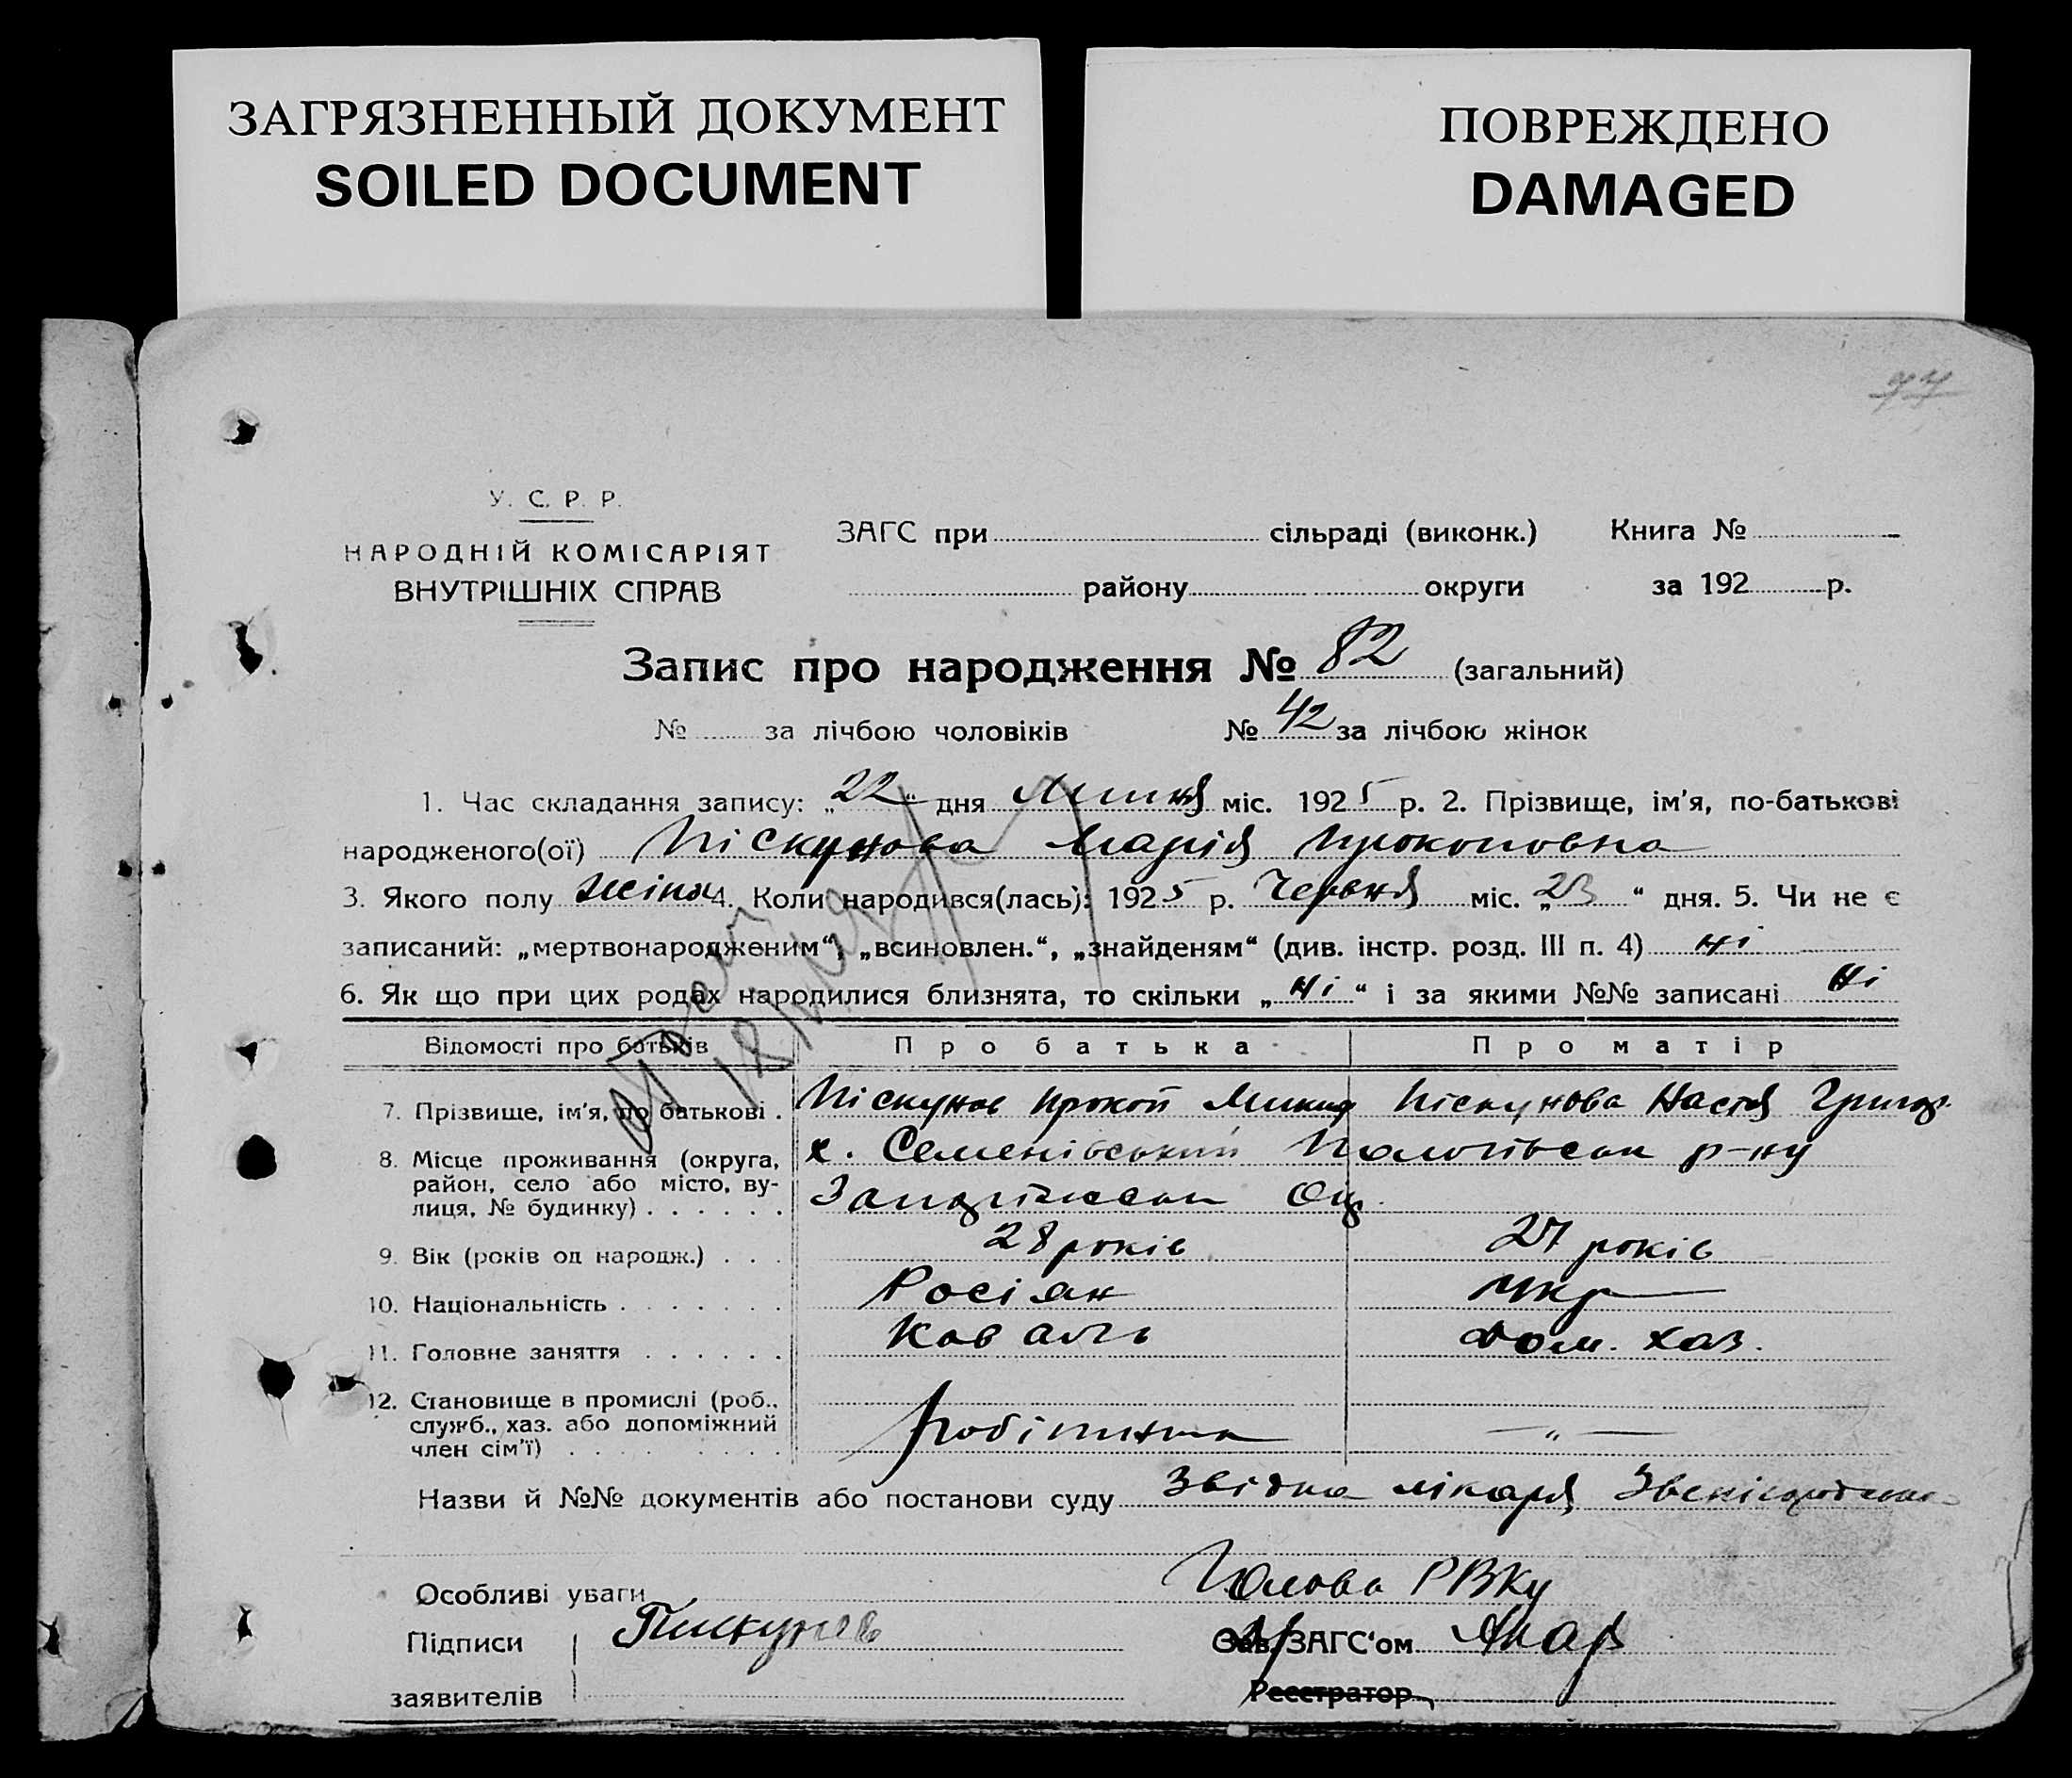 ЗАГРЯЗНЕННЫЙ ДОКУМЕНТ
SOILED DOCUMENT
ПОВРЕЖДЕНО
DAMAGED
У. С. Р. Р.
НАРОДНІЙ КОМІСАРІЯТ
ВНУТРІШНІХ СПРАВ
ЗАГС при сільраді (виконк.) Книга №
району округи за 192 р.
Запис про народження № 82 (загальний)
№ за лічбою чоловіків № 42 за лічбою жінок
1. Час складання запису: „22“ дня Липня міс. 1925 р. 2. Прізвище, ім'я, по-батькові
народженого(ої) Піскунова Марія Прокоповна
3. Якого полу жіноч 4. Коли народився(лась): 1925 р. Червня міс. „23“ дня. 5. Чи не є
записаний: „мертвонародженим“, „всиновлен.“, „знайденям“ (див. інстр. розд. III п. 4) ні
6. Як що при цих родах народилися близнята, то скільки „ні“ і за якими №№ записані ні
Відомості про батьків Про батька Про матір
7. Прізвище, ім'я, по батькові . Піскунов Прокоп Микиф Піскунова Настя Григор.
8. Місце проживання (округа, район, село або місто, вулиця, № будинку) . . . . . . х. Семенівський Пологівськ р-ну
Запоріжськ Окр.
9. Вік (років од народж.) . . . 28 років 27 років
10. Національність . . . . . . . Росіян Укр
11. Головне заняття . . . . . . Коваль Дом. хаз.
12. Становище в промислі (роб., служб., хаз. або допоміжний член сім'ї) . . . . . . . . робітник — „ —
Назви й №№ документів або постанови суду Звідка лікаря
Особливі уваги Голова РВКу
Підписи Пискунов Зав. ЗАГС'ом
заявителів Реєстратор